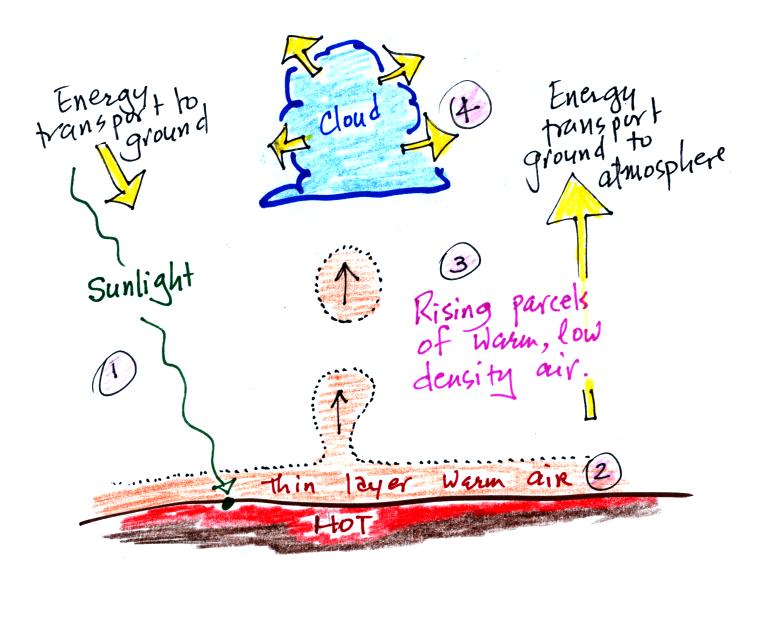 Energy
transport to
ground
Cloud
4
Energy
transport
ground to
atmosphere
Sunlight
3
Rising parcels
of warm, low
density air.
1
thin layer warm air
2
HOT